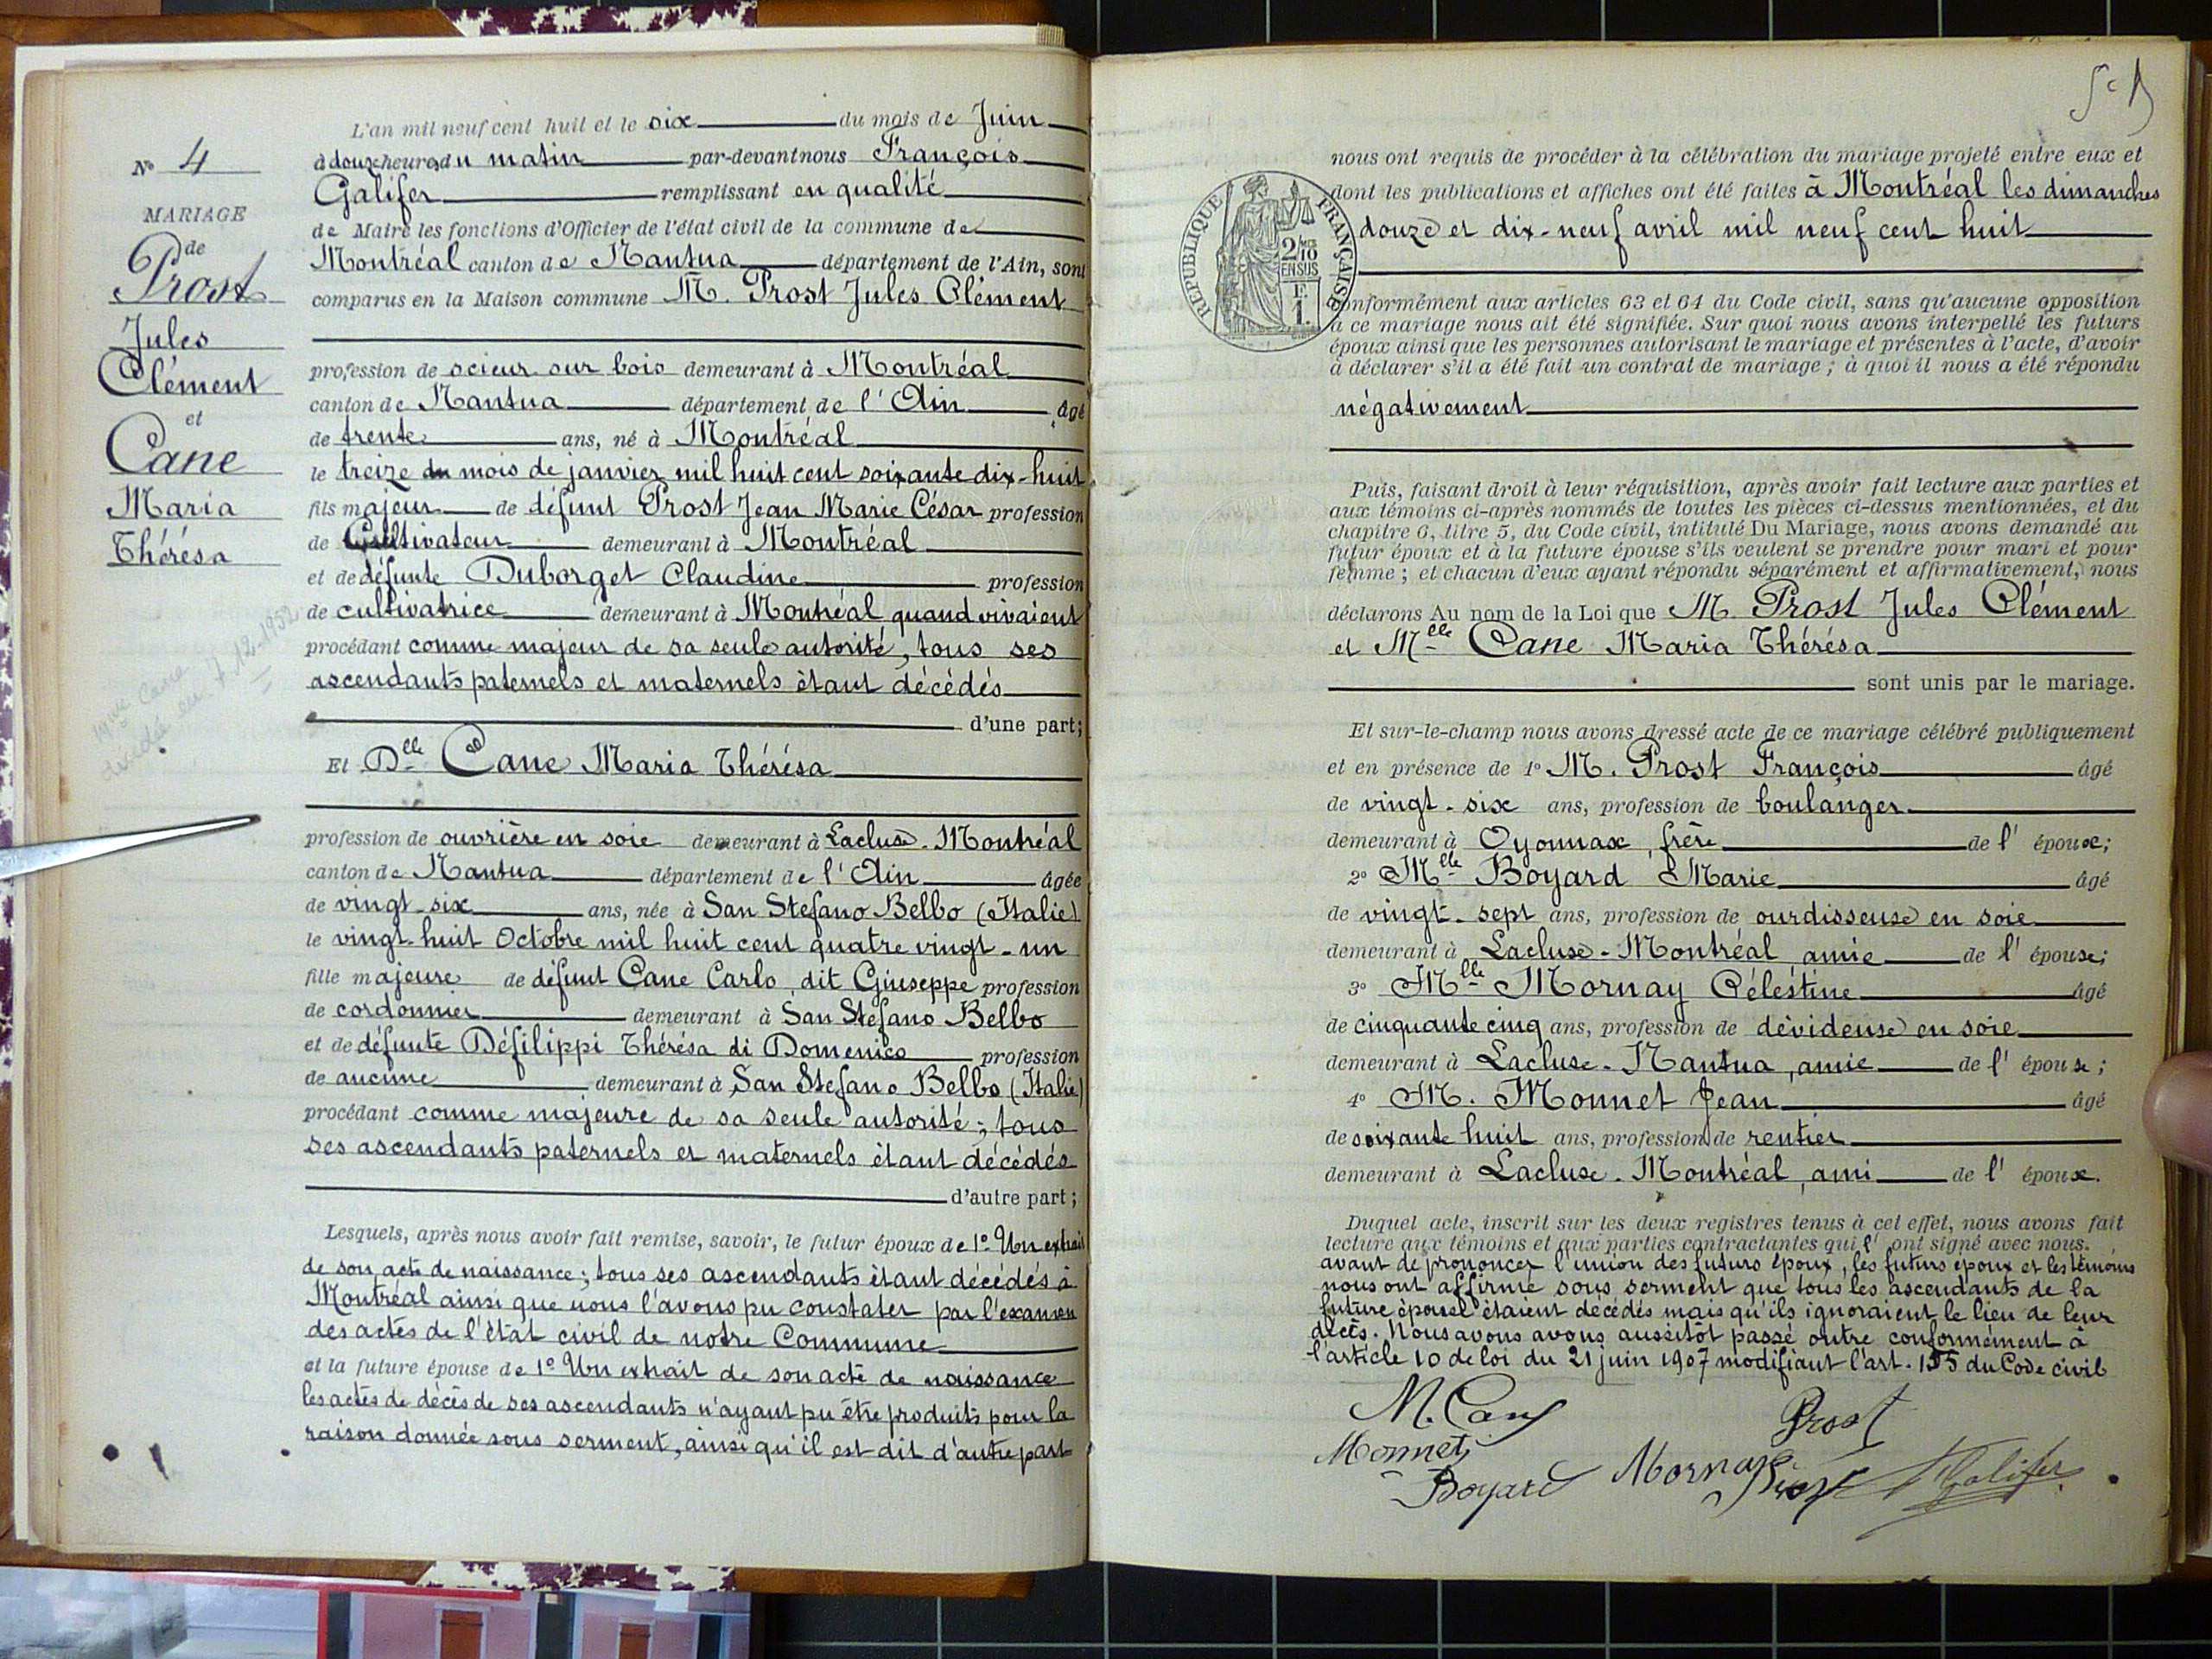 L'an mil neuf cent huit et le six du mois de Juin
N° 4
à heures du matin par-devant nous François
Galifer remplissant en qualité
MARIAGE
de Maire les fonctions d'Officier de l'état civil de la commune de
de
Montréal canton de Nantua département de l'Ain, sont
Prost
comparus en la Maison commune M. Prost Jules Clément
Jules
Clément
profession de scieur sur bois demeurant à Montréal
canton de Nantua département de l'Ain âgé
et
de trente ans, né à Montréal
Cane
le treize du mois de janvier mil huit cent soixante dix-huit
Maria
fils majeur de défunt Prost Jean Marie César profession
Thérésa
de Cultivateur demeurant à Montréal
et de défunte Duborget Claudine profession
de cultivatrice demeurant à Montréal quand vivaient
procédant comme majeur de sa seule autorité, tous ses
ascendants paternels et maternels étant décédés
d'une part;
Mme Cane
décédée en 12-1952
Et Dlle Cane Maria Thérésa
profession de ouvrière en soie demeurant à Lacluse-Montréal
canton de Nantua département de l'Ain âgée
de vingt-six ans, née à San Stefano Belbo (Italie)
le vingt-huit Octobre mil huit cent quatre vingt-un
fille majeure de défunt Cane Carlo, dit Giuseppe profession
de cordonnier demeurant à San Stefano Belbo
et de défunte Défilippi Thérésa di Domenico profession
de aucune demeurant à San Stefano Belbo (Italie)
procédant comme majeure de sa seule autorité; tous
ses ascendants paternels et maternels étant décédés
d'autre part;
Lesquels, après nous avoir fait remise, savoir, le futur époux de 1° Un extrait
de son acte de naissance; tous ses ascendants étant décédés à
Montréal ainsi que nous l'avons pu constater par l'examen
des actes de l'état civil de notre Commune
et la future épouse de 1° Un extrait de son acte de naissance
les actes de décès de ses ascendants n'ayant pu être produits pour la
raison donnée sous serment, ainsi qu'il est dit d'autre part
nous ont requis de procéder à la célébration du mariage projeté entre eux et
dont les publications et affiches ont été faites à Montréal les dimanches
douze et dix-neuf avril mil neuf cent huit
RÉPUBLIQUE FRANÇAISE
2/10
EN SUS
F
1.
conformément aux articles 63 et 64 du Code civil, sans qu'aucune opposition
à ce mariage nous ait été signifiée. Sur quoi nous avons interpellé les futurs
époux ainsi que les personnes autorisant le mariage et présentes à l'acte, d'avoir
à déclarer s'il a été fait un contrat de mariage; à quoi il nous a été répondu
négativement
Puis, faisant droit à leur réquisition, après avoir fait lecture aux parties et
aux témoins ci-après nommés de toutes les pièces ci-dessus mentionnées, et du
chapitre 6, titre 5, du Code civil, intitulé Du Mariage, nous avons demandé au
futur époux et à la future épouse s'ils veulent se prendre pour mari et pour
femme; et chacun d'eux ayant répondu séparément et affirmativement, nous
déclarons Au nom de la Loi que M. Prost Jules Clément
et Mlle Cane Maria Thérésa
sont unis par le mariage.
Et sur-le-champ nous avons dressé acte de ce mariage célébré publiquement
et en présence de 1° M. Prost François âgé
de vingt-six ans, profession de boulanger
demeurant à Oyonnax, frère de l'époux;
2° Mlle Boyard Marie âgé
de vingt-sept ans, profession de ourdisseuse en soie
demeurant à Lacluse-Montréal amie de l'épouse;
3° Mlle Mornay Célestine âgé
de cinquante cinq ans, profession de dévideuse en soie
demeurant à Lacluse-Nantua, amie de l'épouse;
4° M. Monnet Jean âgé
de soixante huit ans, profession de rentier
demeurant à Lacluse-Montréal, ami de l'époux.
Duquel acte, inscrit sur les deux registres tenus à cet effet, nous avons fait
lecture aux témoins et aux parties contractantes qui l'ont signé avec nous.
avant de prononcer l'union des futurs époux, les futurs époux et les témoins
nous ont affirmé sous serment que tous les ascendants de la
future épouse étaient décédés mais qu'ils ignoraient le lieu de leur
décès. Nous avons avons aussitôt passé outre conformément à
l'article 10 de loi du 21 juin 1907 modifiant l'art. 155 du Code civil
M. Cane
Prost
Monnet
Boyard Mornay Prost Galifer